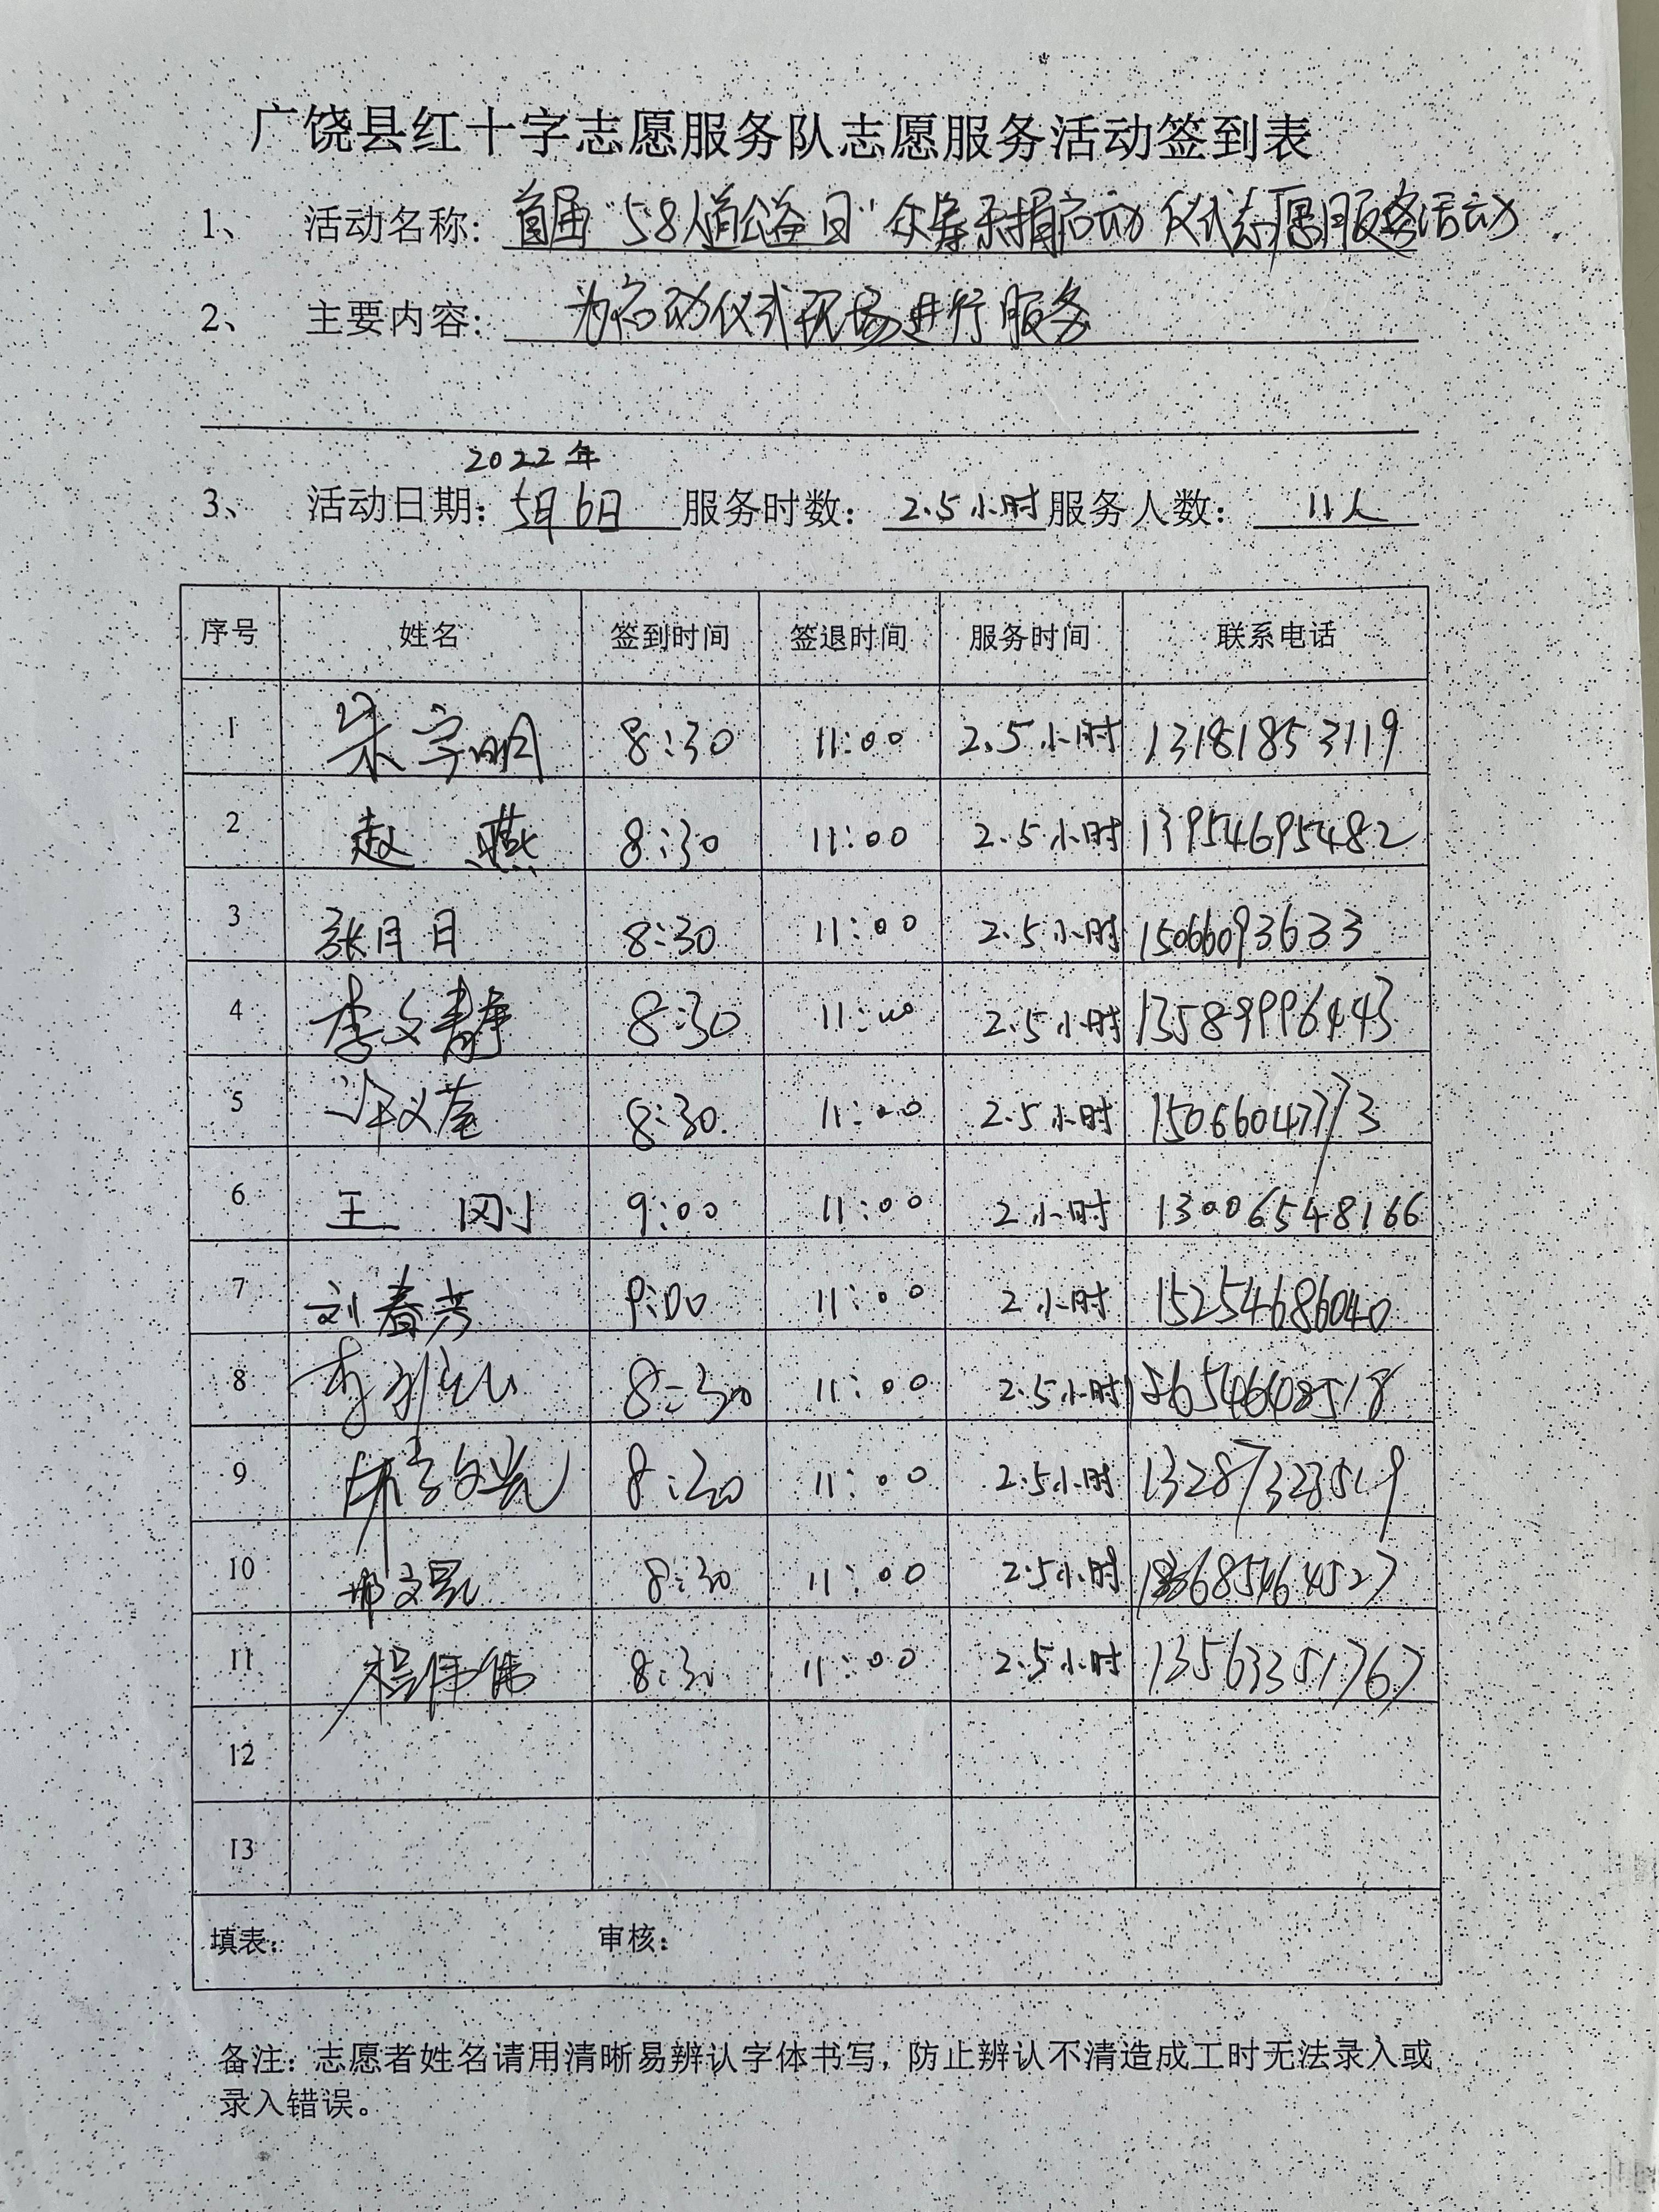 广饶县红十字志愿服务队志愿服务活动签到表
1、 活动名称: 首届"58人道公益日"众筹募捐启动仪式志愿服务活动
2、 主要内容: 为启动仪式现场进行服务
2022年
3、 活动日期: 5月6日 服务时数: 2.5小时 服务人数: 11人
序号 姓名 签到时间 签退时间 服务时间 联系电话
1 8:30 11:00 2.5小时 13181853119
2 赵燕 8:30 11:00 2.5小时 13954695482
3 张月日 8:30 11:00 2.5小时 15066093633
4 李文静 8:30 11:00 2.5小时 13589996443
5 8:30 11:00 2.5小时 15066047773
6 王刚 9:00 11:00 2小时 13006548166
7 刘春芳 9:00 11:00 2小时 15254686040
8 8:30 11:00 2.5小时
9 8:30 11:00 2.5小时 13287328519
10 8:30 11:00 2.5小时
11 程伟伟 8:30 11:00 2.5小时 13563351767
12
13
填表: 审核:
备注: 志愿者姓名请用清晰易辨认字体书写, 防止辨认不清造成工时无法录入或
录入错误。